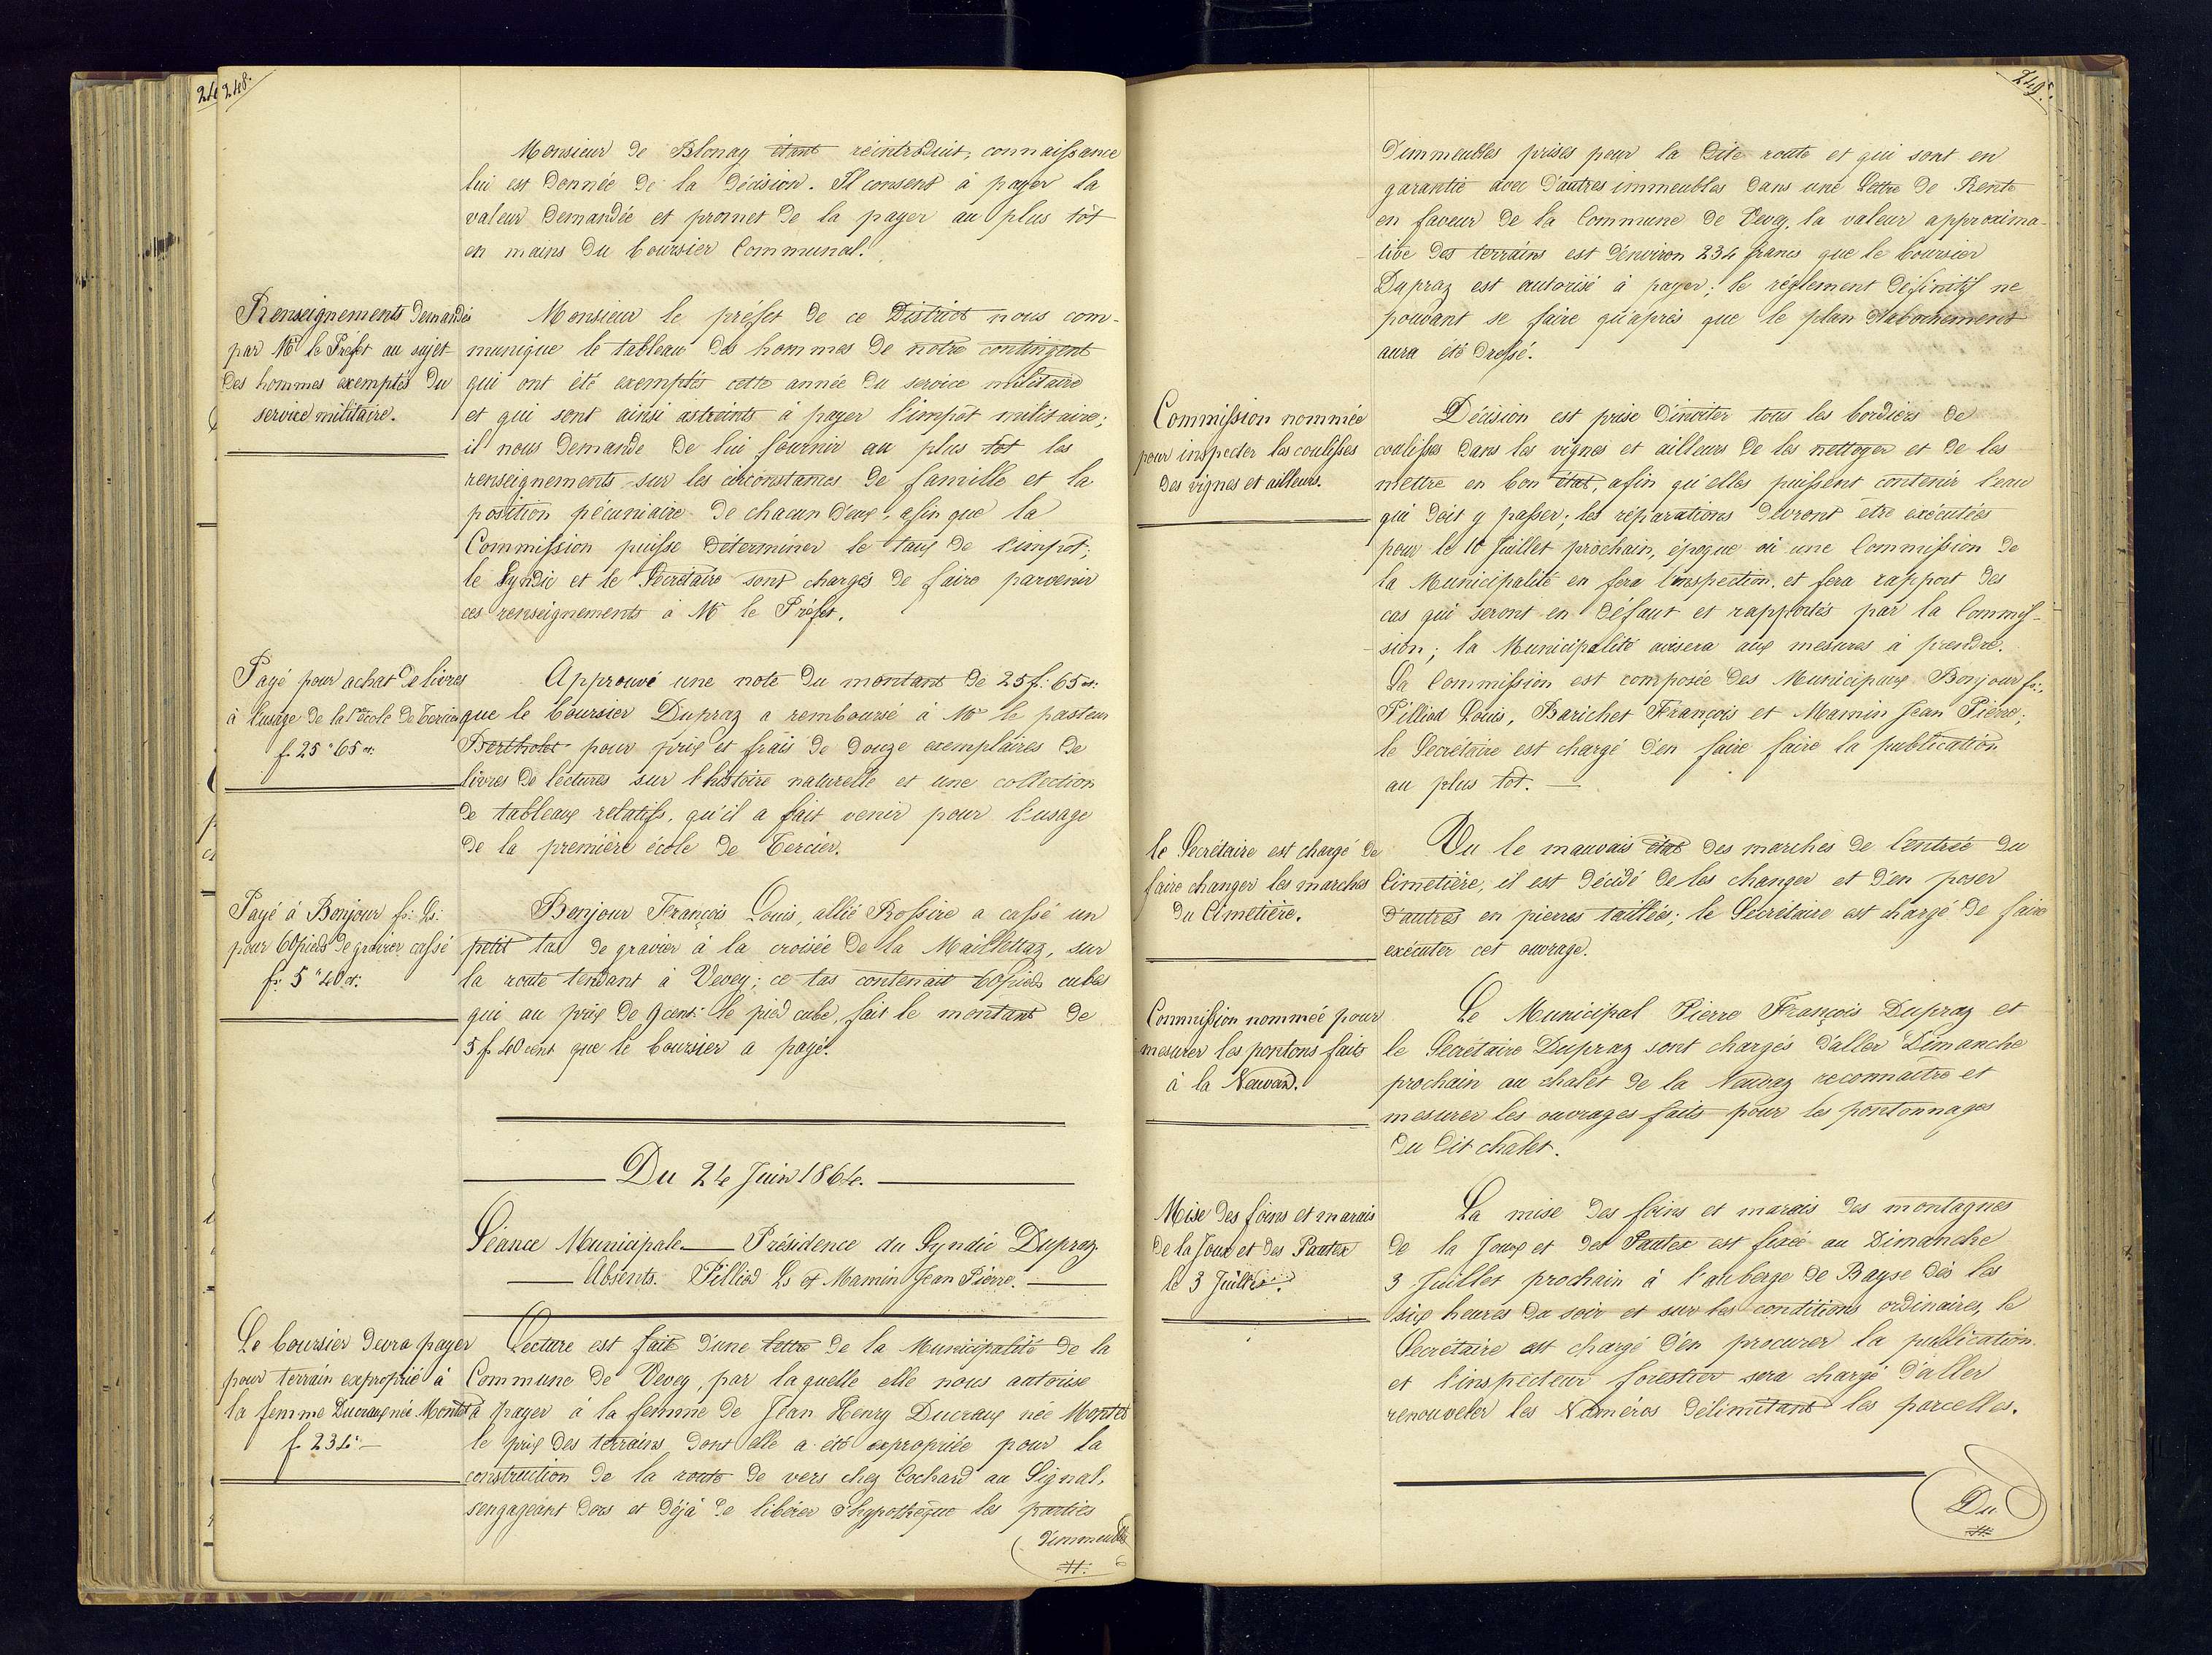 248.
Monsieur de Blonay étant réintroduit, connaissance
lui est donnée de la décision. Il consent à payer la
valeur demandée et promet de la payer au plus tôt
en mains du boursier Communal.
Renseignements demandés
par Mr le Préfet au sujet
des hommes exemptés du
service militaire.
Monsieur le préfet de ce District nous com-
munique le tableau des hommes de notre contingent
qui ont été exemptés cette année du service militaire
et qui sont ainsi astreints à payer l'impôt militaire;
il nous demande de lui fournir au plus tôt les
renseignements sur les circonstances de famille et la
position pécuniaire de chacun d'eux, afin que la
Commission puisse déterminer le taux de l'impôt;
le Syndic et le Secrétaire sont chargés de faire parvenir
ces renseignements à Mr le Préfet.
Payé pour achat de livres
à l'usage de la 1re école de Tercier
f. 25 " 65 ct:
Approuvé une note du montant de 25 f: 65 ct:
que le boursier Dupraz a remboursé à Mr le pasteur
Bertholet pour prix et frais de douze exemplaires de
livres de lectures sur l'histoire naturelle et une collection
de tableaux relatifs, qu'il a fait venir pour l'usage
de la première école de Tercier.
Payé à Bonjour fs: Ls:
pour 60 pieds de gravier cassé
fr: 5 " 40 ct:
Bonjour François Louis, allié Rossire a cassé un
petit tas de gravier à la croisée de la Maillettaz, sur
la route tendant à Vevey; ce tas contenait 60 pieds cubes
qui au prix de 9 cent: le pied cube, fait le montant de
5 f. 40 cent que le boursier a payé.
Du 24 Juin 1864.
Séance Municipale — Présidence du Syndic Dupraz
Absents. Pilliod Ls et Mamin Jean Pierre.
Le boursier devra payer
pour terrain exproprié à
la femme Ducraux née Montet
f. 234 " —
Lecture est faite d'une lettre de la Municipalité de la
Commune de Vevey, par laquelle elle nous autorise
à payer à la femme de Jean Henry Ducraux née Montet
le prix des terrains dont elle a été expropriée pour la
construction de la route de vers chez Cochard au Signal,
s'engageant dors et déjà de libérer d'hypothèque les parties
d'immeubles
249.
d'immeubles prises pour la dite route et qui sont en
garantie avec d'autres immeubles dans une Lettre de Rente
en faveur de la Commune de Vevey, la valeur approxima-
tive des terrains est d'environ 234 francs que le boursier
Dupraz est autorisé à payer; le règlement définitif ne
pouvant se faire qu'après que le plan d'abochement
aura été dressé.
Commission nommée
pour inspecter les coulisses
des vignes et ailleurs.
Décision est prise d'inviter tous les bordiers de
coulisses dans les vignes et ailleurs de les nettoyer et de les
mettre en bon état, afin qu'elles puissent contenir l'eau
qui doit y passer; les réparations devront être exécutées
pour le 10 Juillet prochain, époque où une Commission de
la Municipalité en fera l'inspection, et fera rapport des
cas qui seront en défaut et rapportés par la Commis-
sion; la Municipalité avisera aux mesures à prendre.
La Commission est composée des Municipaux Bonjour fs:,
Pilliod Louis, Barichet François et Mamin Jean Pierre;
le Secrétaire est chargé d'en faire faire la publication
au plus tôt. —
le Secrétaire est chargé de
faire changer les marches
du Cimetière.
Vu le mauvais état des marches de l'entrée du
Cimetière, il est décidé de les changer et d'en poser
d'autres en pierres taillées; le Secrétaire est chargé de faire
exécuter cet ouvrage.
Commission nommée pour
mesurer les pontons faits
à la Neuvaz.
Le Municipal Pierre François Dupraz et
le Secrétaire Dupraz sont chargés d'aller Dimanche
prochain au chalet de la Neuvaz reconnaître et
mesurer les ouvrages faits pour les pontonnages
du dit chalet.
Mise des foins et marais
de la Joux et des Pautex
le 3 Juillet.
La mise des foins et marais des montagnes
de la Joux et des Pautex est fixée au Dimanche
3 Juillet prochain à l'auberge de Bayse dès les
six heures du soir et sur les conditions ordinaires, le
Secrétaire est chargé d'en procurer la publication
et l'inspecteur forestier sera chargé d'aller
renouveler les Numéros délimitant les parcelles.
Du